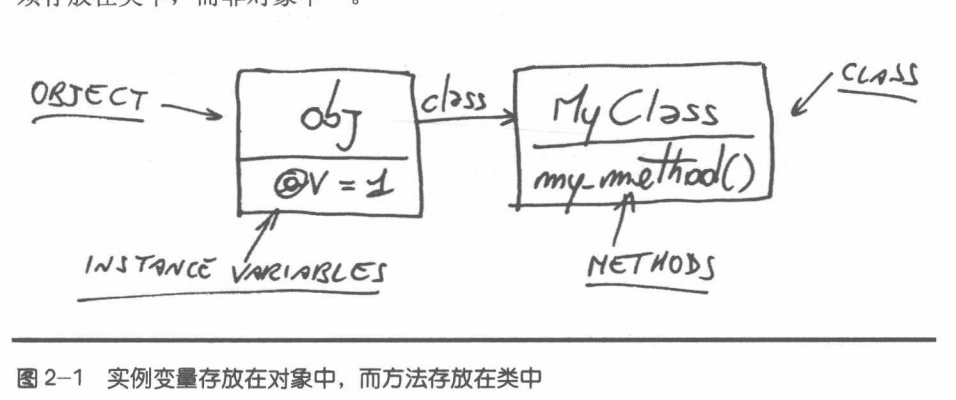 须存放在类中，而非对象中
OBJECT
obj
@v = 1
class
MyClass
my_method()
CLASS
INSTANCE VARIABLES
METHODS
图 2-1 实例变量存放在对象中，而方法存放在类中